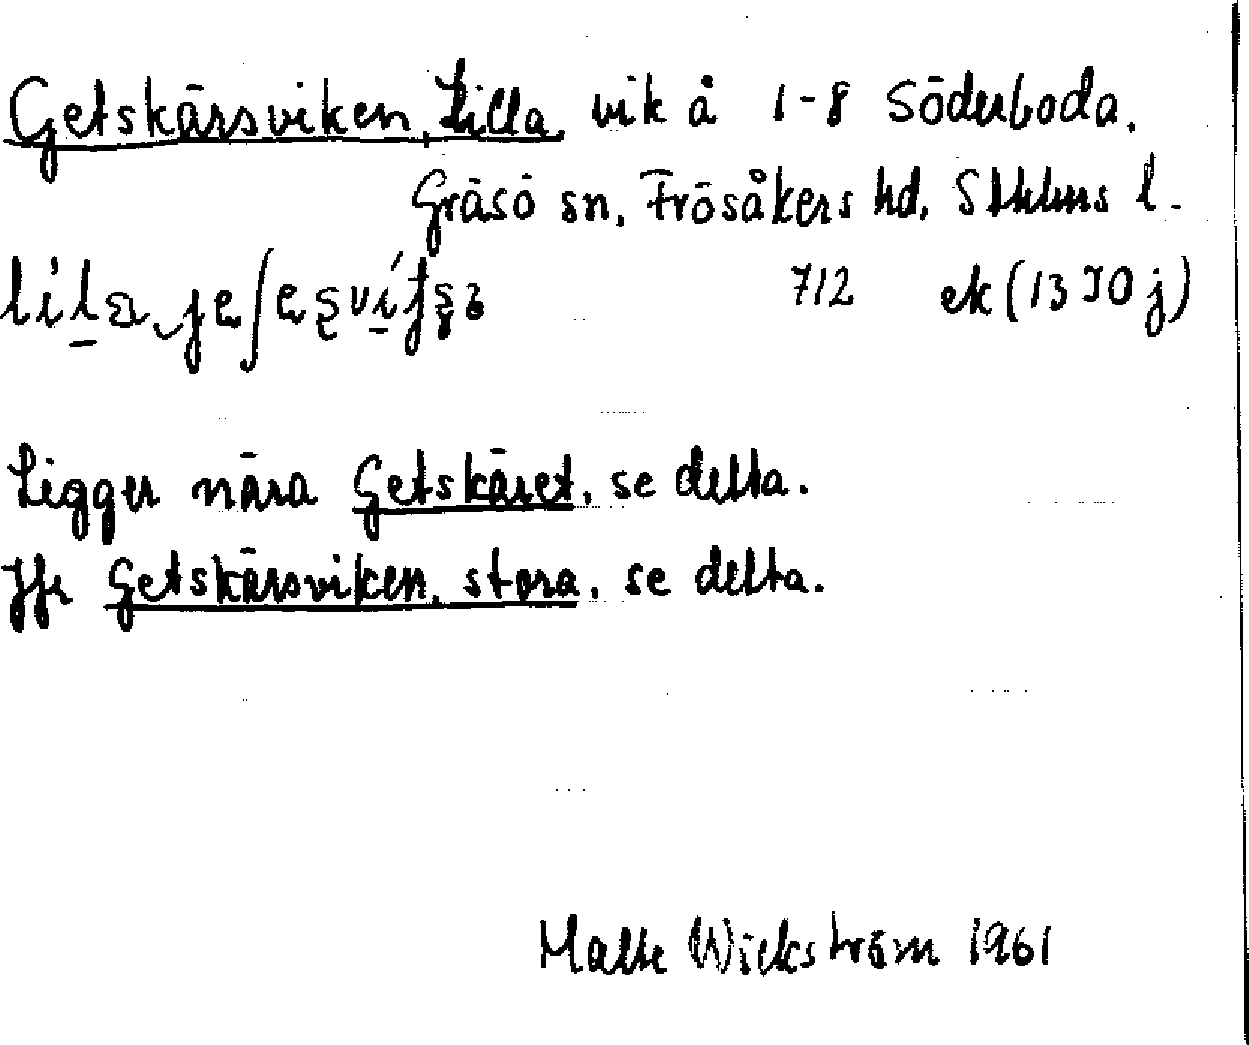 Getskärsviken, Lilla, vik å 1-8 Söderboda.
Gräsö sn, Frösåkers hd, Sthlms l.
712 ek (13 I 0 j)
Ligger nära Getskäret, se detta.
Jfr Getskärsviken, stora, se detta.
Malte Wickström 1961